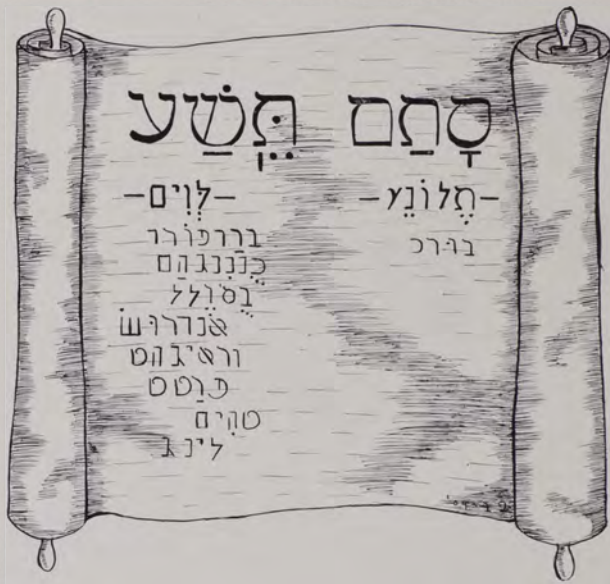 סָתַם תֵּשַׁע
-תֶלוֹנֵץ-
בורכ
-לְוִים-
ברדפורד
כֻנִנְגהַם
בֻסוֶלל
אנדרוש
וראיגהט
פרַטט
טהִים
לינג